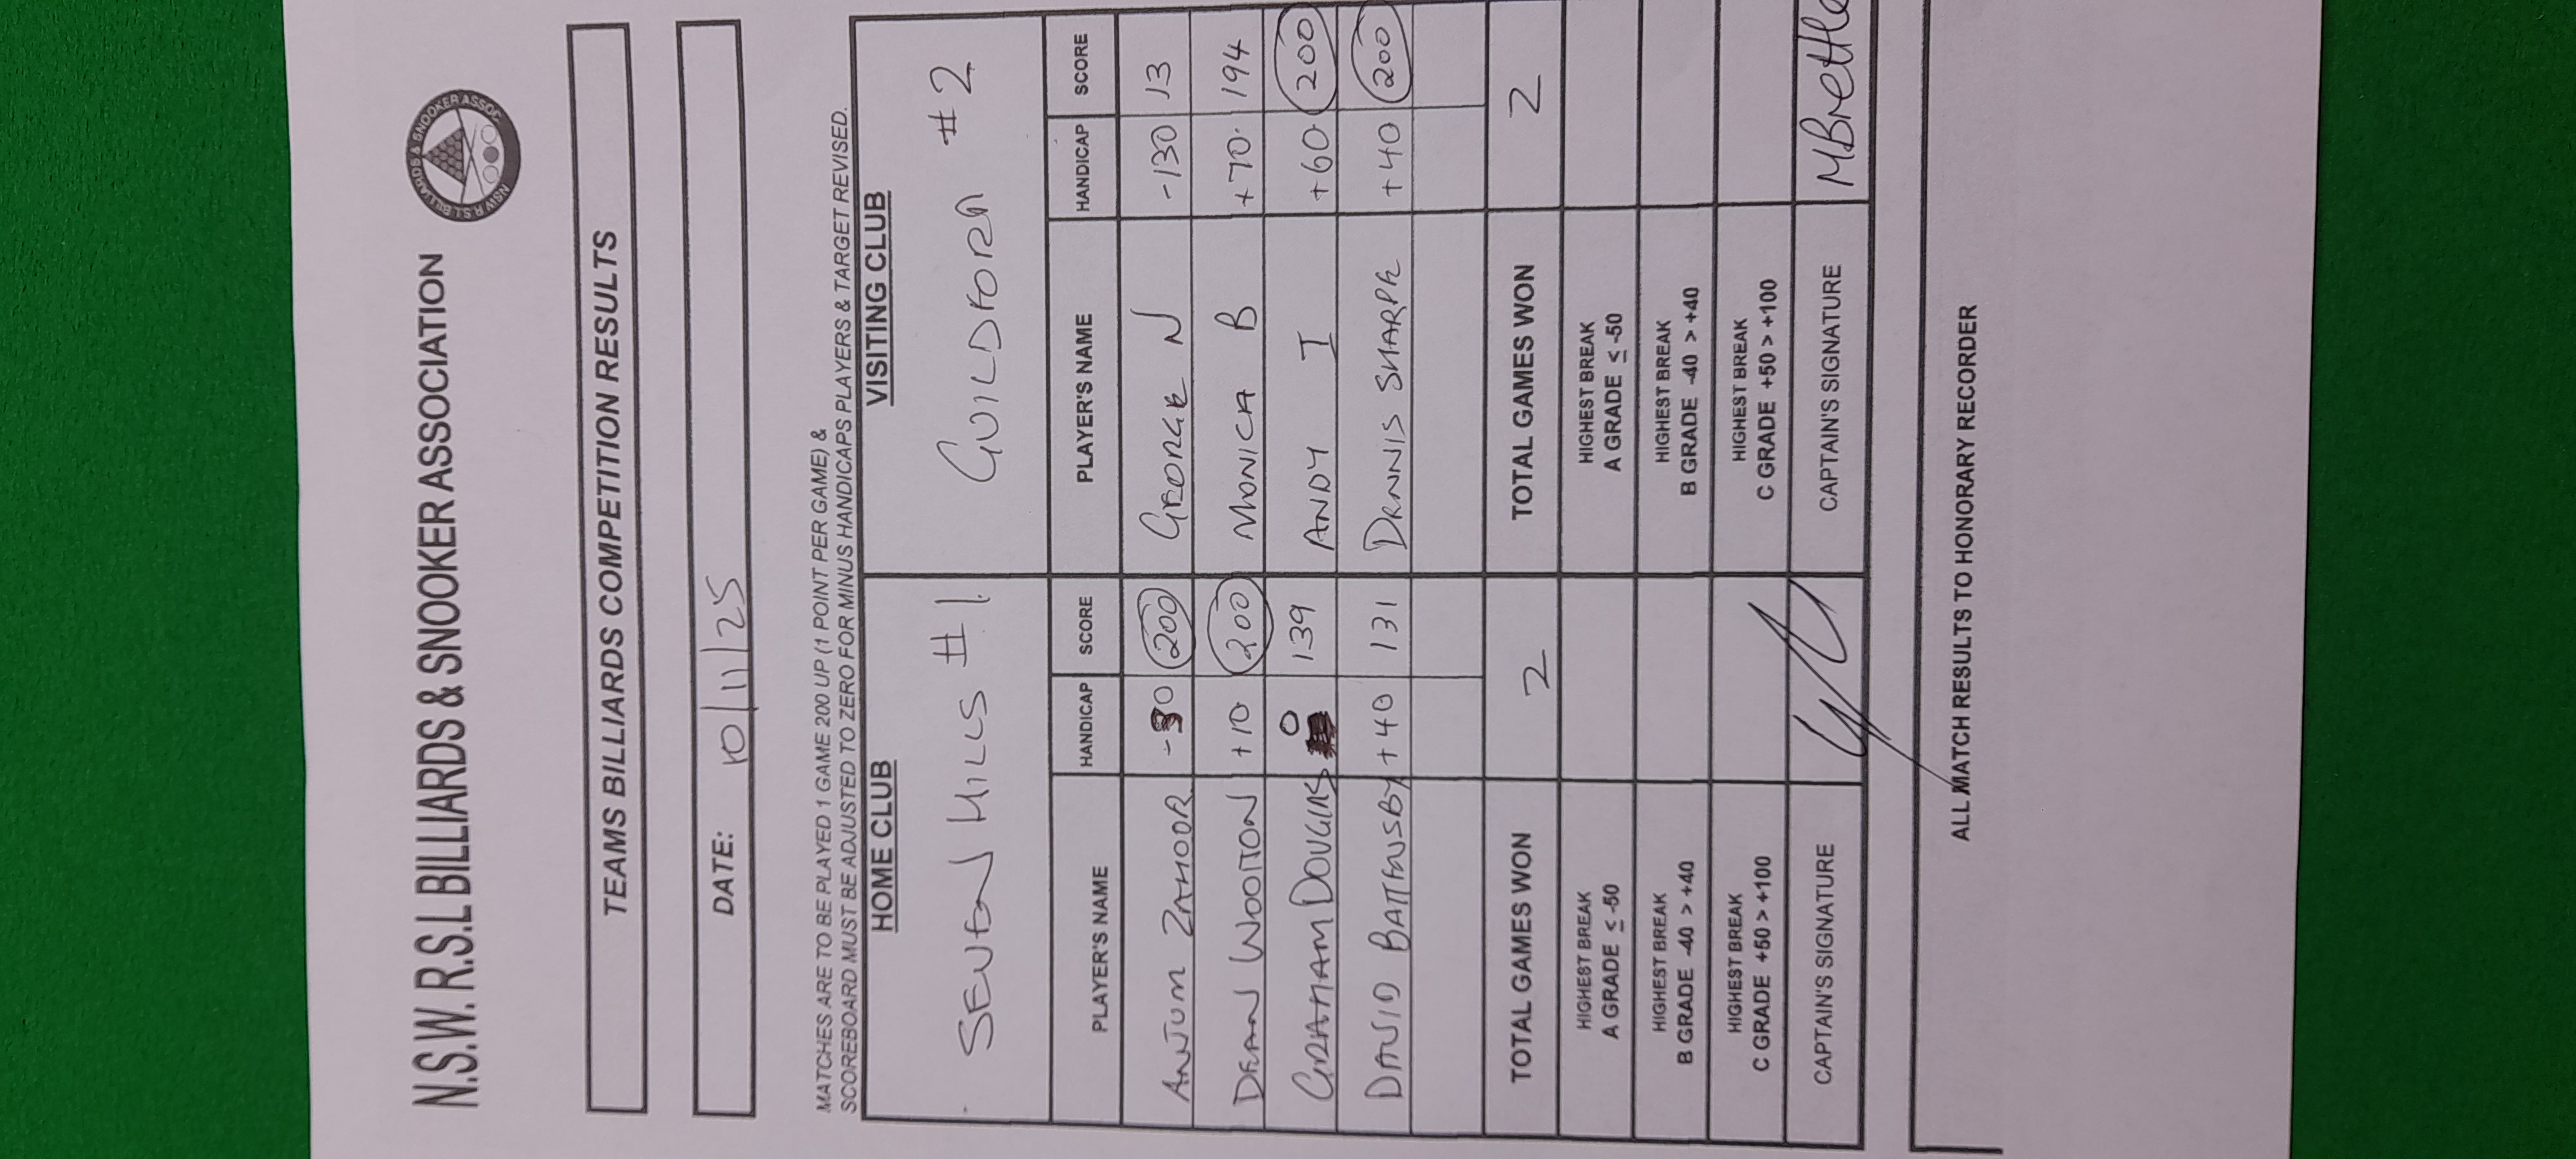 N.S.W. R.S.L BILLIARDS & SNOOKER ASSOCIATION
NSW R.S.L BILLIARDS & SNOOKER ASSOC
TEAMS BILLIARDS COMPETITION RESULTS
DATE: 10/11/25
MATCHES ARE TO BE PLAYED 1 GAME 200 UP (1 POINT PER GAME) &
SCOREBOARD MUST BE ADJUSTED TO ZERO FOR MINUS HANDICAPS PLAYERS & TARGET REVISED.
HOME CLUB VISITING CLUB
SEVEN HILLS #1 GUILDFORD #2
PLAYER'S NAME HANDICAP SCORE PLAYER'S NAME HANDICAP SCORE
ANJUM ZAHOOR 200 GEORGE N -130 13
DEAN WOOTTON +10 200 MONICA B +70 194
GRAHAM DOUGLAS 0 139 ANDY I +60 200
DAVID BATTENSBY +40 131 DENNIS SHARPE +40 200
TOTAL GAMES WON 2 TOTAL GAMES WON 2
HIGHEST BREAK
A GRADE ≤ -50
HIGHEST BREAK
A GRADE ≤ -50
HIGHEST BREAK
B GRADE -40 > +40
HIGHEST BREAK
B GRADE -40 > +40
HIGHEST BREAK
C GRADE +50 > +100
HIGHEST BREAK
C GRADE +50 > +100
CAPTAIN'S SIGNATURE CAPTAIN'S SIGNATURE
ALL MATCH RESULTS TO HONORARY RECORDER